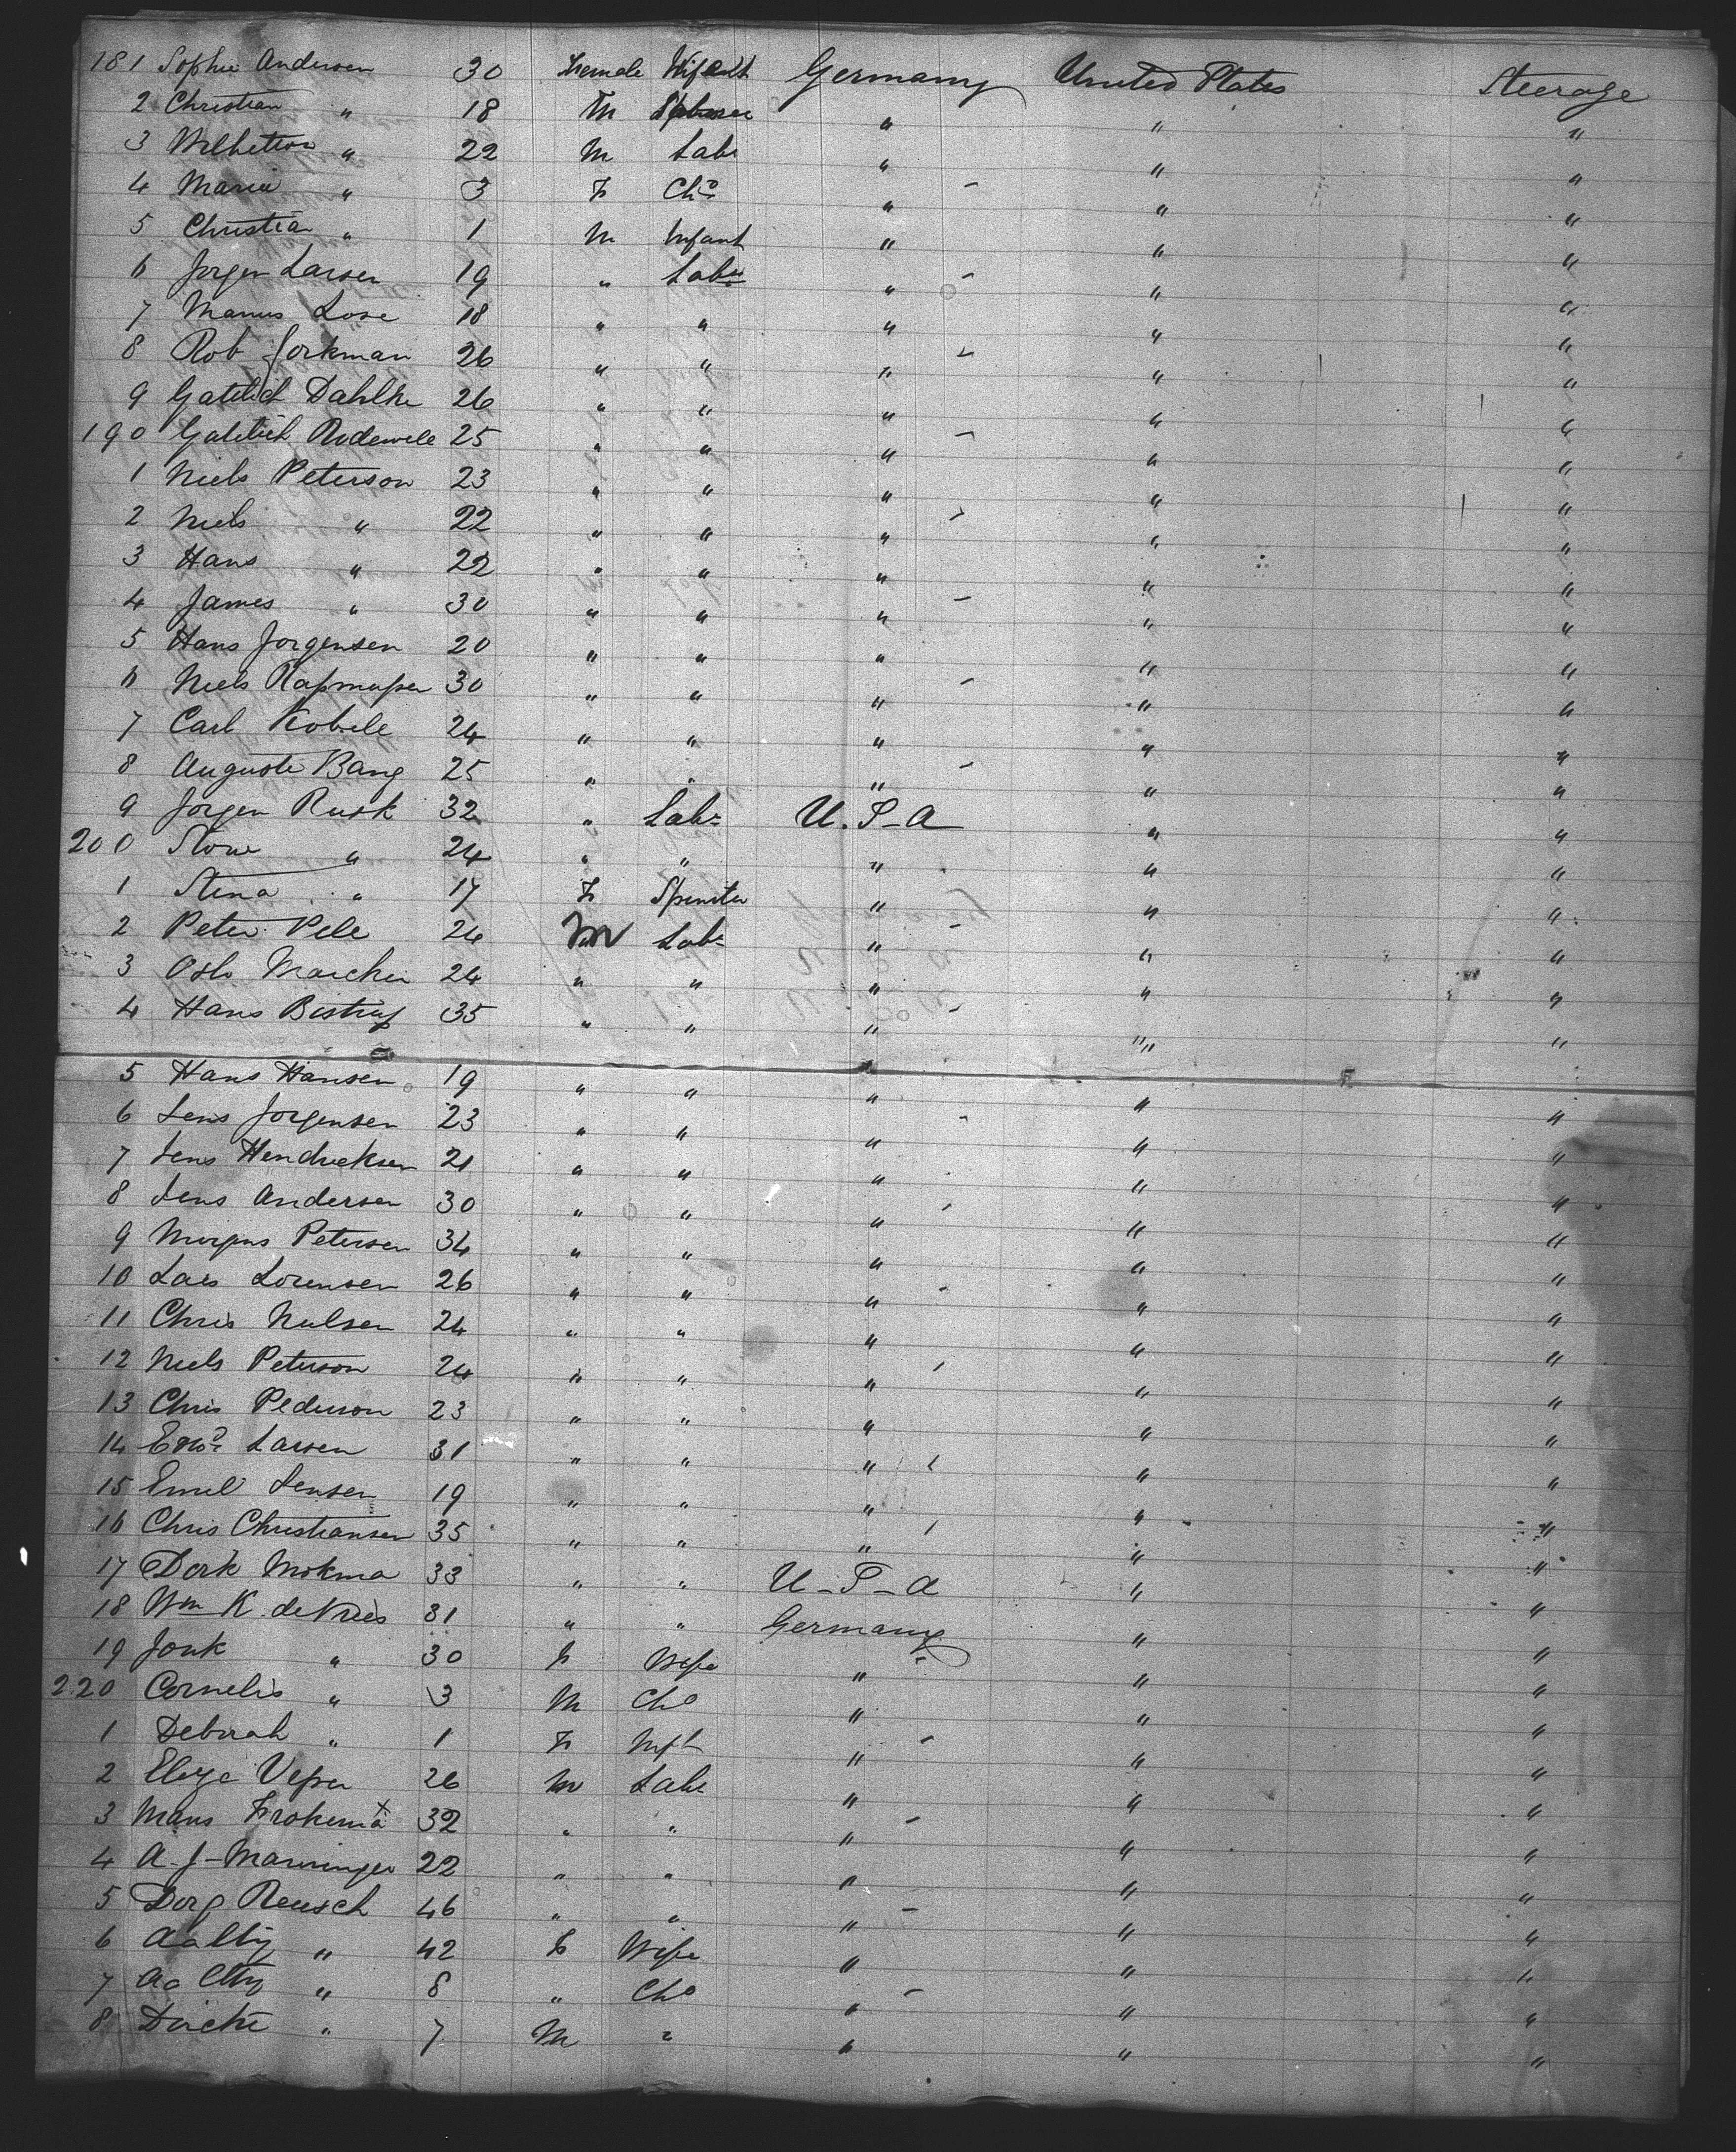 181 Sophie Andersen 30 Female Wife Germany United States Steerage
2 Christian " 18 M " " "
3 " 22 M Labr " " "
4 Maria " 3 F Chd " " "
5 Christian " 1 M Infant " " "
6 Jorgen Larsen 19 " Labr " " "
7 Manus Lose 18 " " " " "
8 Rob Jorkman 26 " " " " "
9 Dahlke 26 " " " " "
190 25 " " " " "
1 Niels Peterson 23 " " " " "
2 Niels " 22 " " " " "
3 Hans " 22 " " " " "
4 James " 30 " " " " "
5 Hans Jorgensen 20 " " " " "
6 Niels Rasmussen 30 " " " " "
7 Carl Kobele 24 " " " " "
8 Auguste Bang 25 " " " " "
9 Jorgen Rusk 32 " Labr U.S-A " "
200 " 24 " " " " "
1 Stena " 17 F Spinster " " "
2 Peter Pele 24 M Labr " " "
3 Marcher 24 " " " " "
4 Hans Bistrup 35 " " " " "
5 Hans Hansen 19 " " " " "
6 Jens Jorgensen 23 " " " " "
7 Jens Hendricksen 21 " " " " "
8 Jens Andersen 30 " " " " "
9 Petersen 34 " " " " "
10 Lars Lorensen 26 " " " " "
11 Chris Nielsen 24 " " " " "
12 Niels Peterson 24 " " " " "
13 Chris Pederson 23 " " " " "
14 Larsen 31 " " " " "
15 Emil Jensen 19 " " " " "
16 Chris Christiansen 35 " " " " "
17 Derk Mokma 33 " " U-S-A " "
18 Wm K. de Vries 31 " " Germany " "
19 Jouk " 30 F Wife " " "
220 Cornelis " 3 M Chd " " "
1 Deborah " 1 F Inft " " "
2 26 M Labr " " "
3 Mans 32 " " " " "
4 A-J- 22 " " " " "
5 Reusch 46 " " " " "
6 Aalty " 42 F Wife " " "
7 Aaltty " 8 " Chd " " "
8 Dircke " 7 M " " " "